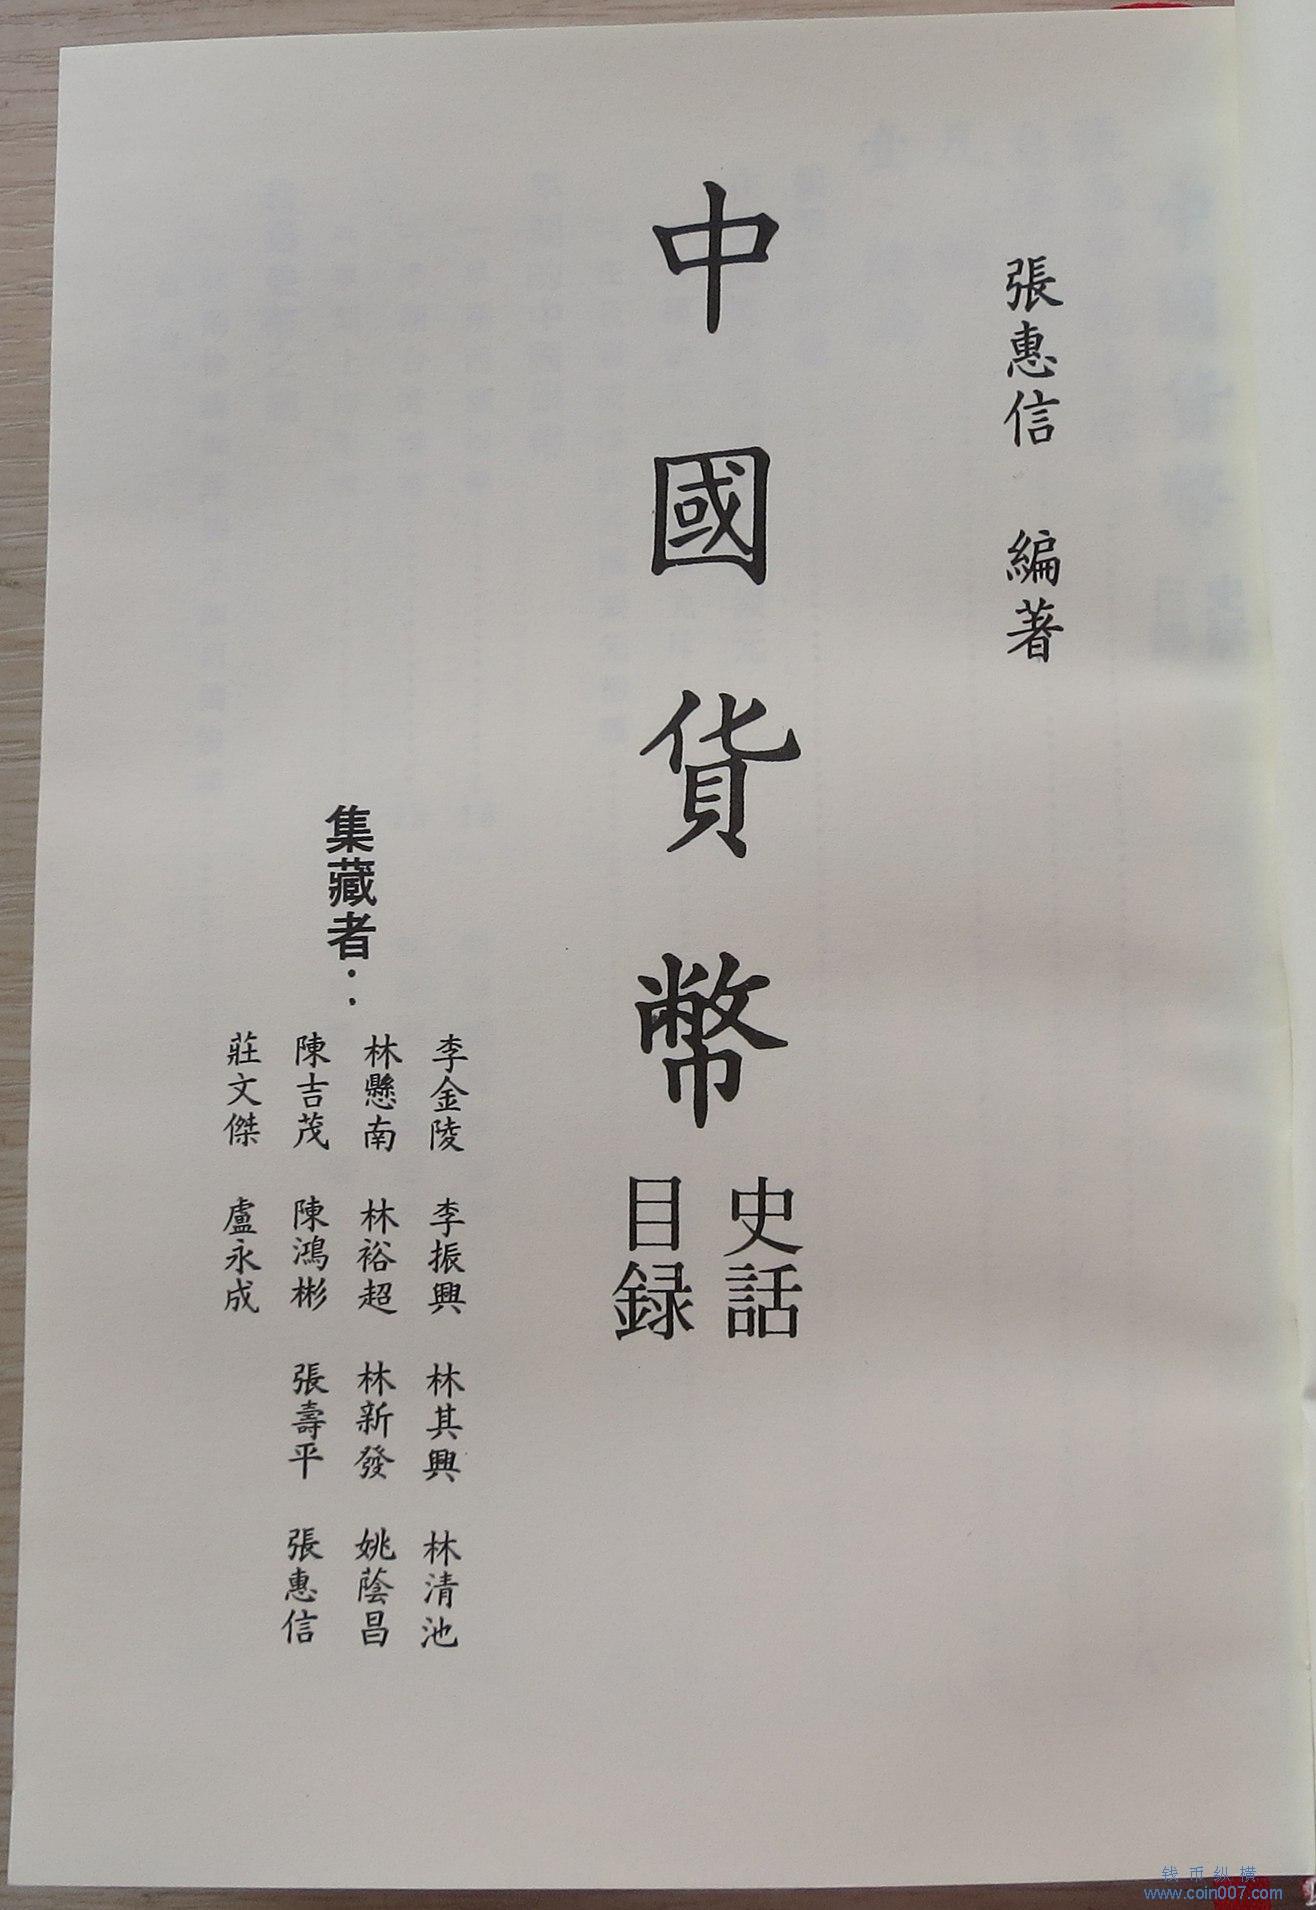 張惠信 編著
中國貨幣
史話
目録
集藏者：
李金陵 李振興 林其興 林清池
林懸南 林裕超 林新發 姚蔭昌
陳吉茂 陳鴻彬 張壽平 張惠信
莊文傑 盧永成
钱币纵横
www.coin007.com